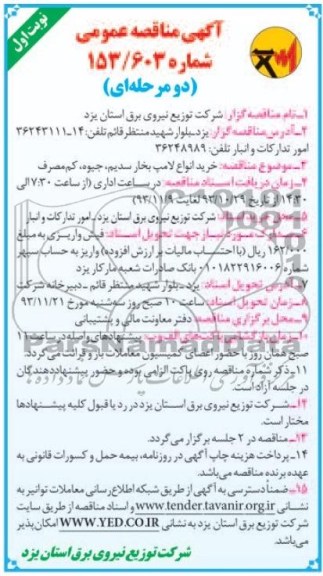 نوبت اول
آگهی مناقصه عمومی
شماره ۱۵۳/۶۰۳
(دو مرحله‌ای)
۱ـ نام مناقصه گزار: شرکت توزیع نیروی برق استان یزد
۲ـ آدرس مناقصه گزار: یزد ـ بلوار شهید منتظر قائم تلفن: ۱۴ـ ۳۶۲۴۳۱۱۱
امور تدارکات و انبار تلفن: ۳۶۲۴۸۹۸۹
۳ـ موضوع مناقصه: خرید انواع لامپ بخار سدیم، جیوه، کم مصرف
۴ـ زمان دریافت اسناد مناقصه: در ساعات اداری (از ساعت ۷:۳۰ الی
۱۴:۳۰) از تاریخ ۹۳/۱۰/۲۹ لغایت ۹۳/۱۱/۹
شرکت توزیع نیروی برق استان یزد ـ امور تدارکات و انبار
۶ـ مدارک مورد نیاز جهت تحویل اسناد: فیش واریزی به مبلغ
۱۶۲/۰۰۰ ریال (با احتساب مالیات بر ارزش افزوده) واریز به حساب سپهر
شماره ۰۱۰۱۸۲۲۹۱۶۰۰۶ بانک صادرات شعبه مارکار یزد
۷ـ آدرس تحویل اسناد: یزد ـ بلوار شهید منتظر قائم ـ دبیرخانه شرکت
۸ـ زمان تحویل اسناد: ساعت ۱۰ صبح روز سه‌شنبه مورخ ۹۳/۱۱/۲۱
۹ـ محل برگزاری مناقصه: دفتر معاونت مالی و پشتیبانی
پیشنهادهای واصله در ساعت ۱۱
صبح همان روز با حضور اعضای کمیسیون معاملات باز و قرائت می‌گردد.
۱۱ـ ذکر شماره مناقصه روی پاکت الزامی بوده و حضور پیشنهاددهندگان
در جلسه آزاد است.
۱۲ـ شرکت توزیع نیروی برق استان یزد در رد یا قبول کلیه پیشنهادها
مختار است.
۱۳ـ مناقصه در ۲ جلسه برگزار می‌گردد.
۱۴ـ پرداخت هزینه چاپ آگهی در روزنامه، بیمه حمل و کسورات قانونی به
عهده برنده مناقصه می‌باشد.
۱۵ـ ضمناً دسترسی به آگهی از طریق شبکه اطلاع رسانی معاملات توانیر به
نشانی www.tender.tavanir.org.ir و اسناد مناقصه از طریق سایت
شرکت توزیع نیروی برق یزد به نشانی WWW.YED.CO.IR امکان‌پذیر
می‌باشد.
شرکت توزیع نیروی برق استان یزد